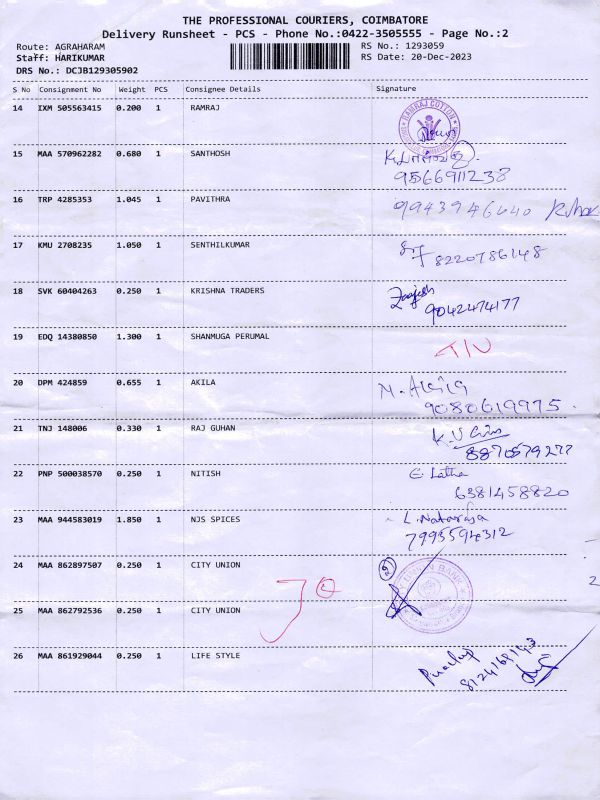 THE PROFESSIONAL COURIERS, COIMBATORE
Delivery Runsheet - PCS - Phone No.:0422-3505555 - Page No.:2
Route: AGRAHARAM RS No.: 1293059
Staff: HARIKUMAR RS Date: 20-Dec-2023
DRS No.: DCJB129305902
S No Consignment No Weight PCS Consignee Details Signature
14 IXM 505563415 0.200 1 RAMRAJ
RAMRAJ COTTON
15 MAA 570962282 0.680 1 SANTHOSH
9566911238
16 TRP 4285353 1.045 1 PAVITHRA 9943946040
17 KMU 2708235 1.050 1 SENTHILKUMAR
8220786148
18 SVK 60404263 0.250 1 KRISHNA TRADERS
9042474177
19 EDQ 14380850 1.300 1 SHANMUGA PERUMAL
20 DPM 424859 0.655 1 AKILA M. Akila
9080619975
21 TNJ 148006 0.330 1 RAJ GUHAN
8870579277
22 PNP 500038570 0.250 1 NITISH E. Latha
6381458820
23 MAA 944583019 1.850 1 NJS SPICES L. Nataraja
7993594312
24 MAA 862897507 0.250 1 CITY UNION
25 MAA 862792536 0.250 1 CITY UNION
26 MAA 861929044 0.250 1 LIFE STYLE Pradeep
8124168143